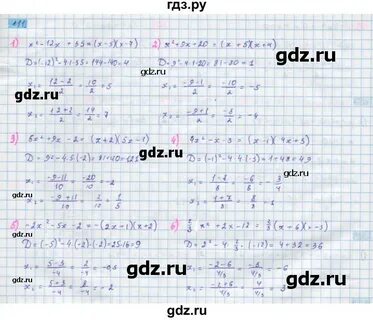 гдз.ру
191
1) x² - 12x + 35 = (x - 5)(x - 7)
D = (-12)² - 4·35 = 144 - 140 = 4
x₁ = (12 - 2)/2 = 10/2 = 5
x₂ = (12 + 2)/2 = 14/2 = 7
2) x² + 9x + 20 = (x + 5)(x + 4)
D = 9² - 4·20 = 81 - 80 = 1
x₁ = (-9 - 1)/2 = -10/2 = -5
x₂ = (-9 + 1)/2 = -8/2 = -4
3) 5x² + 9x - 2 = (x + 2)(5x - 1)
D = 9² - 4·5·(-2) = 81 + 40 = 121
x₁ = (-9 - 11)/10 = -20/10 = -2
x₂ = (-9 + 11)/10 = 2/10 = 1/5
4) 4x² - x - 3 = (x - 1)(4x + 3)
D = (-1)² - 4·4·(-3) = 1 + 48 = 49
x₁ = (1 - 7)/8 = -6/8 = -3/4
x₂ = (1 + 7)/8 = 8/8 = 1
5) -2x² - 5x - 2 = -(2x + 1)(x + 2)
D = (-5)² - 4·(-2)·(-2) = 25 - 16 = 9
x₁ = (5 - 3)/-4 = 2/-4 = -0,5
x₂ = (5 + 3)/-4 = 8/-4 = -2
6) 2/3 x² + 2x - 12 = 2/3 (x + 6)(x - 3)
D = 2² - 4·2/3·(-12) = 4 + 32 = 36
x₁ = (-2 - 6)/(4/3) = -8/(4/3) = -6
x₂ = (-2 + 6)/(4/3) = 4/(4/3) = 3
gdz.ru
gdz.ru
gdz.ru
gdz.ru
gdz.ru
gdz.ru
gdz.ru
gdz.ru